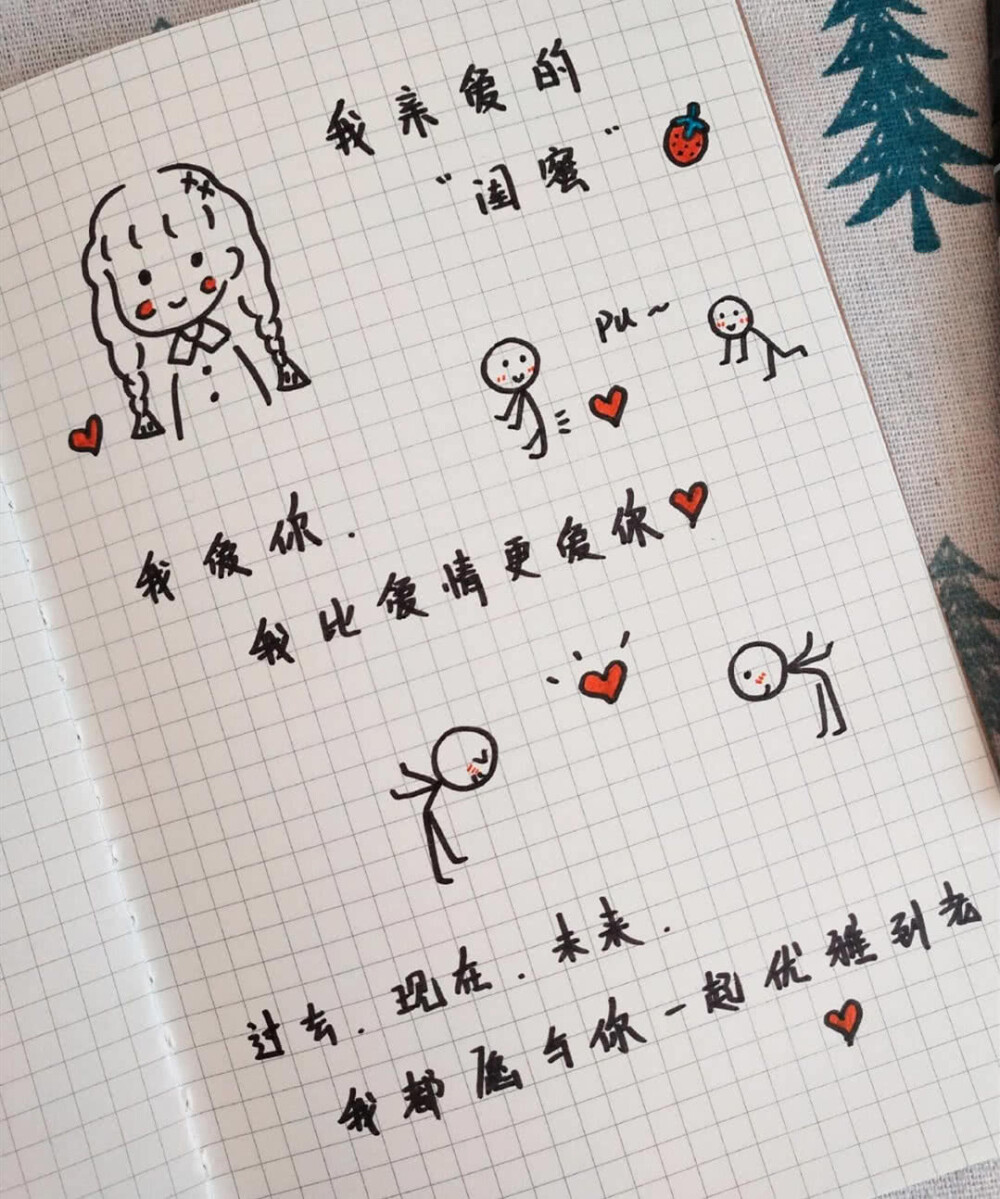 我亲爱的
“闺蜜”
pu~
我爱你.
我比爱情更爱你
过去.现在.未来.
我都愿与你一起优雅到老